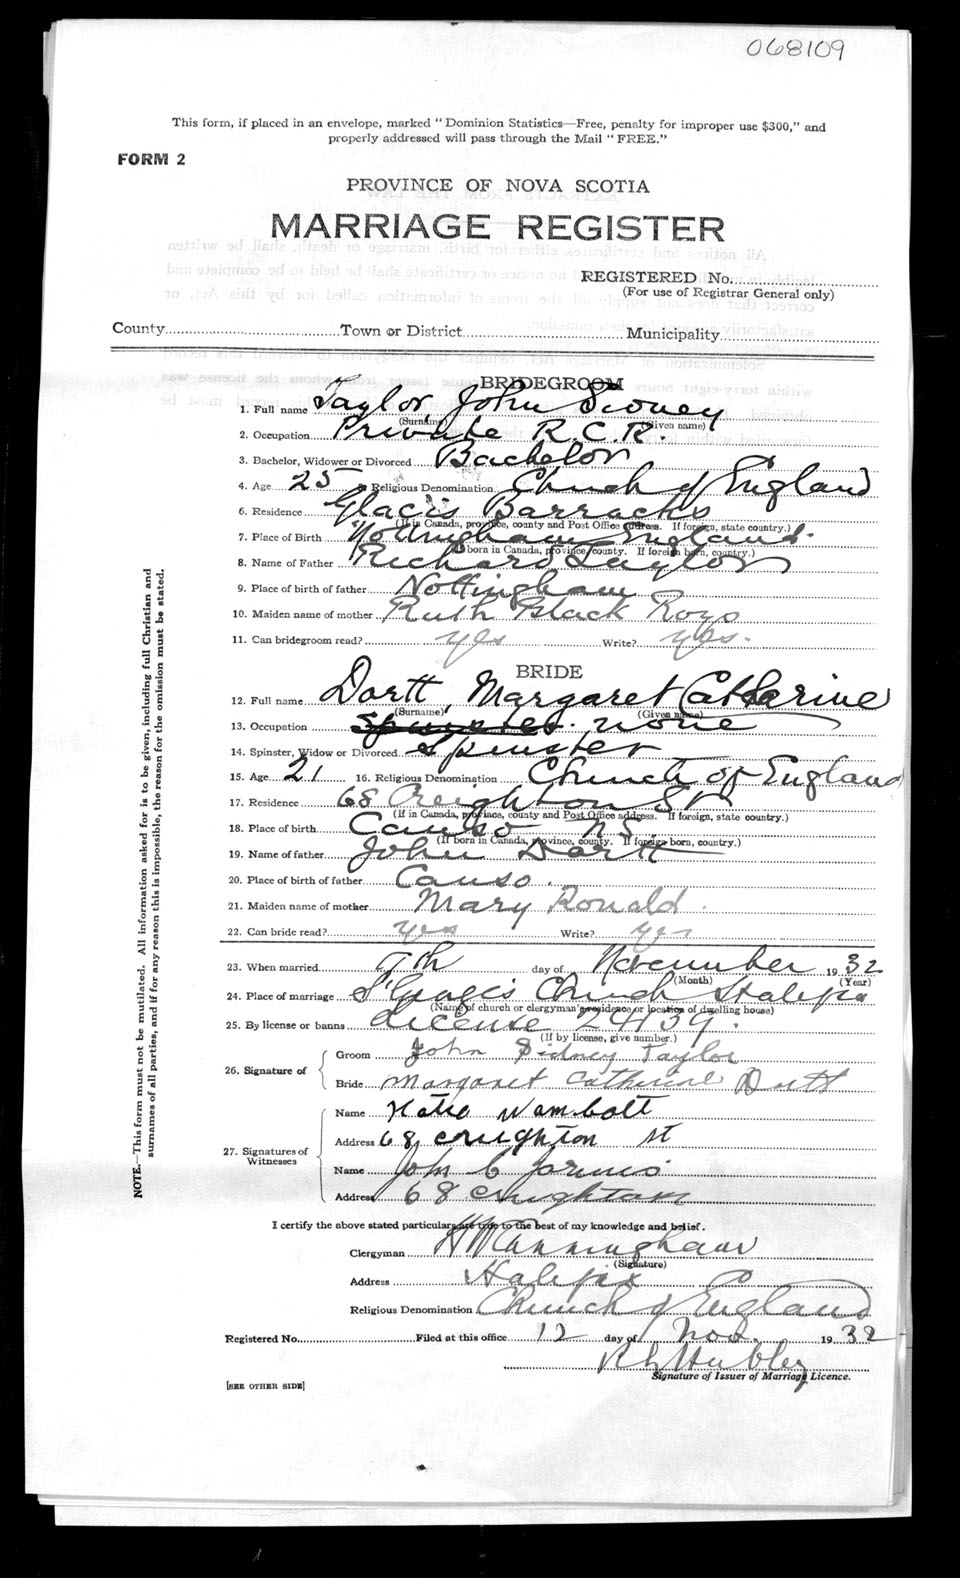 068109
This form, if placed in an envelope, marked "Dominion Statistics—Free, penalty for improper use $300," and
properly addressed will pass through the Mail "FREE."
FORM 2
PROVINCE OF NOVA SCOTIA
MARRIAGE REGISTER
REGISTERED No.
(For use of Registrar General only)
County Town or District Municipality
BRIDEGROOM
1. Full name Taylor John Sidney
(Surname) (Given name)
2. Occupation Private R.C.R.
3. Bachelor, Widower or Divorced Bachelor
4. Age 25 5 Religious Denomination Church of England
6. Residence Glacis Barracks
(If in Canada, province, county and Post Office address. If foreign, state country.)
7. Place of Birth Nottingham England.
(If born in Canada, province, county. If foreign born, country.)
8. Name of Father Richard Taylor
9. Place of birth of father Nottingham
10. Maiden name of mother Ruth Black
11. Can bridegroom read? yes Write? yes.
BRIDE
12. Full name Dortt, Margaret Catherine
(Surname) (Given name)
13. Occupation none
14. Spinster, Widow or Divorced Spinster
15. Age 21 16. Religious Denomination Church of England
17. Residence 68 Creighton St
(If in Canada, province, county and Post Office address. If foreign, state country.)
18. Place of birth Canso NS.
(If born in Canada, province, county. If foreign born, country.)
19. Name of father John Dortt
20. Place of birth of father Canso.
21. Maiden name of mother Mary Ronald.
22. Can bride read? yes Write? yes
23. When married 9th day of November 1932
(Month) (Year)
24. Place of marriage St George's Church Halifax
(Name of church or clergyman's residence or location of dwelling house)
25. By license or banns License 24139.
(If by license, give number.)
26. Signature of
Groom John Sidney Taylor
Bride Margaret Catherine Dortt
27. Signatures of Witnesses
Name Katie Wambolt
Address 68 creighton st
Name John C
Address 68 creighton
I certify the above stated particulars are true to the best of my knowledge and belief.
Clergyman H Cunningham
(Signature)
Address Halifax
Religious Denomination Church of England
Registered No. Filed at this office 12 day of Nov. 1932
Hubley
Signature of Issuer of Marriage Licence.
[SEE OTHER SIDE]
NOTE.—This form must not be mutilated. All information asked for is to be given, including full Christian and
surnames of all parties, and if for any reason this is impossible, the reason for the omission must be stated.